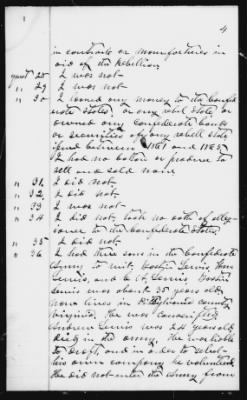 4
in contracts or manufactures in
aid of the rebellion
quest 28 I was not
" 29 I was not
" 30 I loaned any money to the confed
erate states or any rebel state or
owned any confederate bonds
or securities of any rebel state
issued between 1861 and 1865
I had no cotton or produce to
sell and sold none
" 31. I did not
" 32. I did not
" 33 I was not
" 34 I did not, took no oath of alleg
iance to the confederate states
" 35 I did not
" 36 I had three sons in the confederate
Army to wit, Lewis, Wm
Lewis, and A. Lewis.
Lewis was about 35 years old
now lives in Pittsylvania county
Virginia. He was conscripted
Andrew Lewis was 24 years old
died in the army. He was liable
to draft, and in order to select
his own company he volunteered
He did not enter the Army from